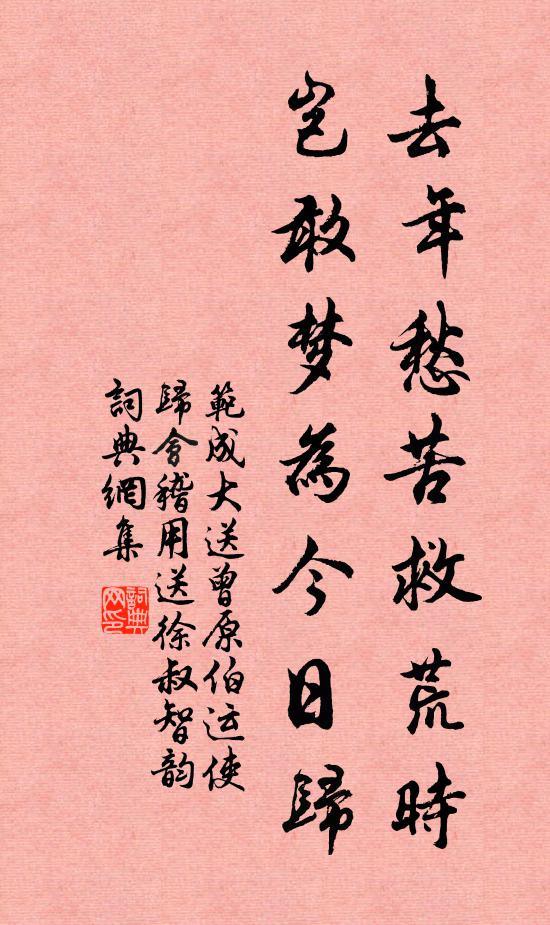 去年愁苦救荒時
岂敢梦為今日歸
範成大送曾原伯运使
歸會稽用送徐叔智韵
詞典網集
詞典
网印